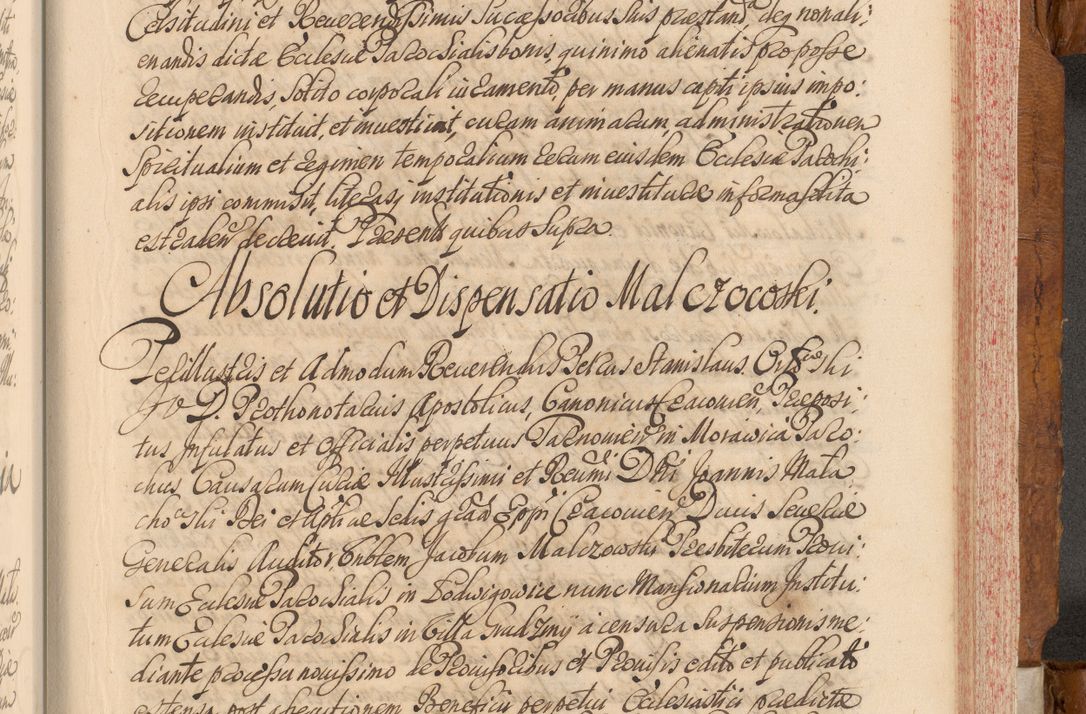 Celsitudini et Reverendissimis Successoribus suis praestand, deq non ali:
enandis dictae Ecclesiae Parochialis bonis, quinimo alienatis pro posse
recuperandis, solito corporali iuramento, per manus capiti ipsius impo:
sitionem instituit, et investivit, curam animarum, administrationem
Spiritualium et regimen temporalium rerum eiusdem Ecclesiae Parochi:
alis ipsi commisit, literasq institutionis et investiturae in forma solita
extraden decrevit. Praesent quibus supra.
Absolutio et Dispensatio Malczocoski.
Perillustris et Admodum Reverendus Petrus Stanislaus Orłowski
IVD. Prothonotarius Apostolicus, Canonicus Cracovien, Praeposi:
tus Infulatus et Officialis perpetuus Tarnovien in Morawica Paro:
chus Causarum Curiae Illustrissimi et Reverendi Dni Joannis Mała
chowski Dei et Apticae Sedis gratia Eppi Cracovien Ducis Severiae
Generalis Auditor, Enblem Jacobum Malczowski Presbiterum Provi:
sum Ecclesiae Parochialis in Bodwigowice nunc Mansionarium Institu:
tum Ecclesiae Parochialis in Villa Gradziny a censura suspensionis me:
diante processu novissimo de Provisoribus et Provisis edito et publicato
extenso post adeptionem Beneficii perpetui Ecclesiastici praedicta